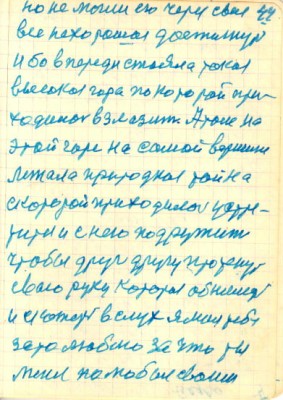 но не могли ею через свои 44
все нехорошая достигнут
ибо впереди стояла такая
высокая гора по которой при-
ходилося взлазить. А тоже на
этой горе на самой вершини
лежала природная тайна
с которой приходилося устре-
титя и с нею подружит
чтобы друг другу протянут
свою руку которая обнимет
и скажет вслух я мил тебя
за то люблю за что ты
меня полюбил своим